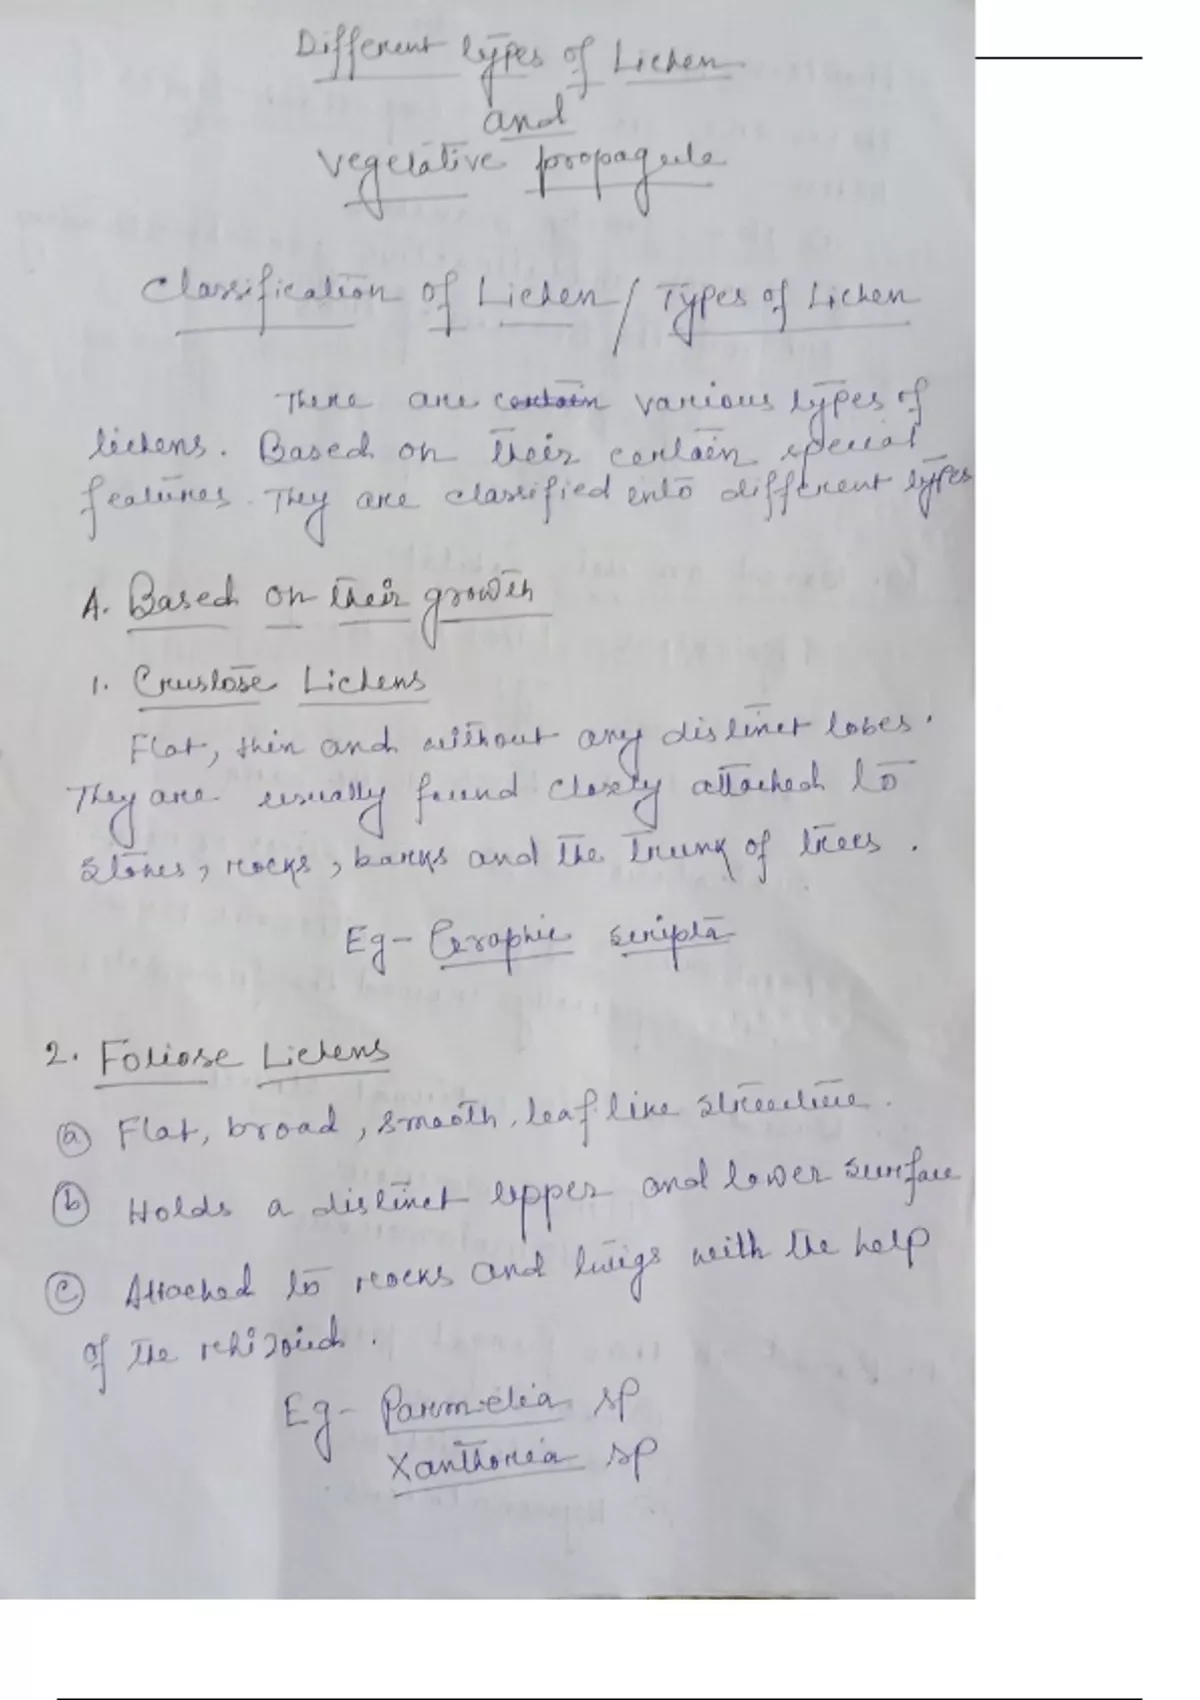 Different types of Lichen
and
vegetative propagule
Classification of Lichen / Types of Lichen
There are certain various types of
lichens. Based on their certain special
features. They are classified into different types
A. Based on their growth
1. Crustose Lichens
Flat, thin and without any distinct lobes.
They are usually found closely attached to
stones, rocks, barks and the trunk of trees.
Eg- Graphie scripta
2. Foliose Lichens
(a) Flat, broad, smooth, leaf like structure.
(b) Holds a distinct upper and lower surface
(c) Attached to rocks and twigs with the help
of the rhizoids.
Eg- Parmelia sp
Xanthoria sp